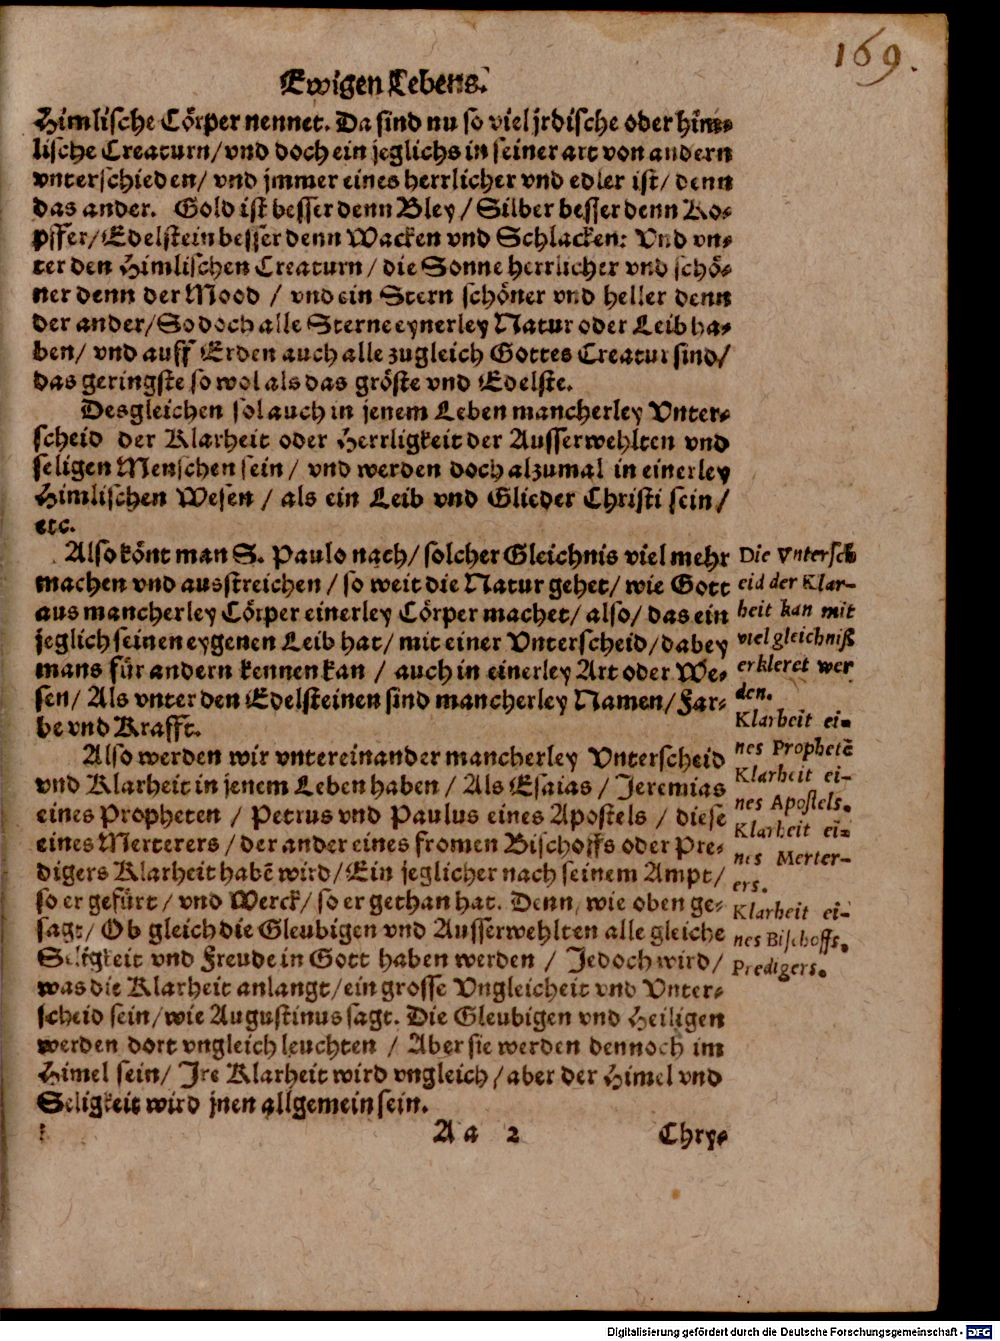 169.
Ewigen Lebens.
Himlische Cörper nennet. Da sind nu so viel jrdische oder him-
lische Creaturn/ vnd doch ein jeglichs in seiner art von andern
vnterschieden/ vnd jmmer eines herrlicher vnd edler ist/ denn
das ander. Gold ist besser denn Bley/ Silber besser denn Ko-
pffer/ Edelstein besser denn Wacken vnd Schlacken: Vnd vn-
ter den Himlischen Creaturn/ die Sonne herrlicher vnd schö-
ner denn der Mood / vnd ein Stern schöner vnd heller denn
der ander/ So doch alle Sterne eynerley Natur oder Leib ha-
ben/ vnd auff Erden auch alle zugleich Gottes Creatur sind/
das geringste so wol als das gröste vnd Edelste.
Desgleichen sol auch in jenem Leben mancherley Vnter-
scheid der Klarheit oder Herrligkeit der Ausserwehlten vnd
seligen Menschen sein/ vnd werden doch alzumal in einerley
Himlischen Wesen / als ein Leib vnd Glieder Christi sein/
etc.
Also könt man S. Paulo nach/ solcher Gleichnis viel mehr
machen vnd ausstreichen/ so weit die Natur gehet/ wie Gott
aus mancherley Cörper einerley Cörper machet/ also/ das ein
jeglich seinen eygenen Leib hat/ mit einer Vnterscheid/ dabey
mans für andern kennen kan / auch in einerley Art oder We-
sen/ Als vnter den Edelsteinen sind mancherley Namen/ Far-
be vnd Krafft.
Die Vntersch
eid der Klar-
heit kan mit
viel gleichniß
erkleret wer
den.
Also werden wir vntereinander mancherley Vnterscheid
vnd Klarheit in jenem Leben haben / Als Esaias / Jeremias
eines Propheten / Petrus vnd Paulus eines Apostels / diese
eines Merterers / der ander eines fromen Bischoffs oder Pre-
digers Klarheit habē wird/ Ein jeglicher nach seinem Ampt/
so er gefürt/ vnd Werck/ so er gethan hat. Denn, wie oben ge-
sagt/ Ob gleich die Gleubigen vnd Ausserwehlten alle gleiche
Seligkeit vnd Freude in Gott haben werden / Jedoch wird/
was die Klarheit anlangt/ ein grosse Vngleicheit vnd Vnter-
scheid sein/ wie Augustinus sagt. Die Gleubigen vnd Heiligen
werden dort vngleich leuchten / Aber sie werden dennoch im
Himel sein/ Jre Klarheit wird vngleich/ aber der Himel vnd
Seligkeit wird jnen allgemein sein.
Klarheit ei-
nes Prophetē
Klarheit ei-
nes Apostels.
Klarheit ei-
nes Merter-
ers.
Klarheit ei-
nes Bischoffs,
Predigers.
Aa 2 Chry-
Digitalisierung gefördert durch die Deutsche Forschungsgemeinschaft - DFG